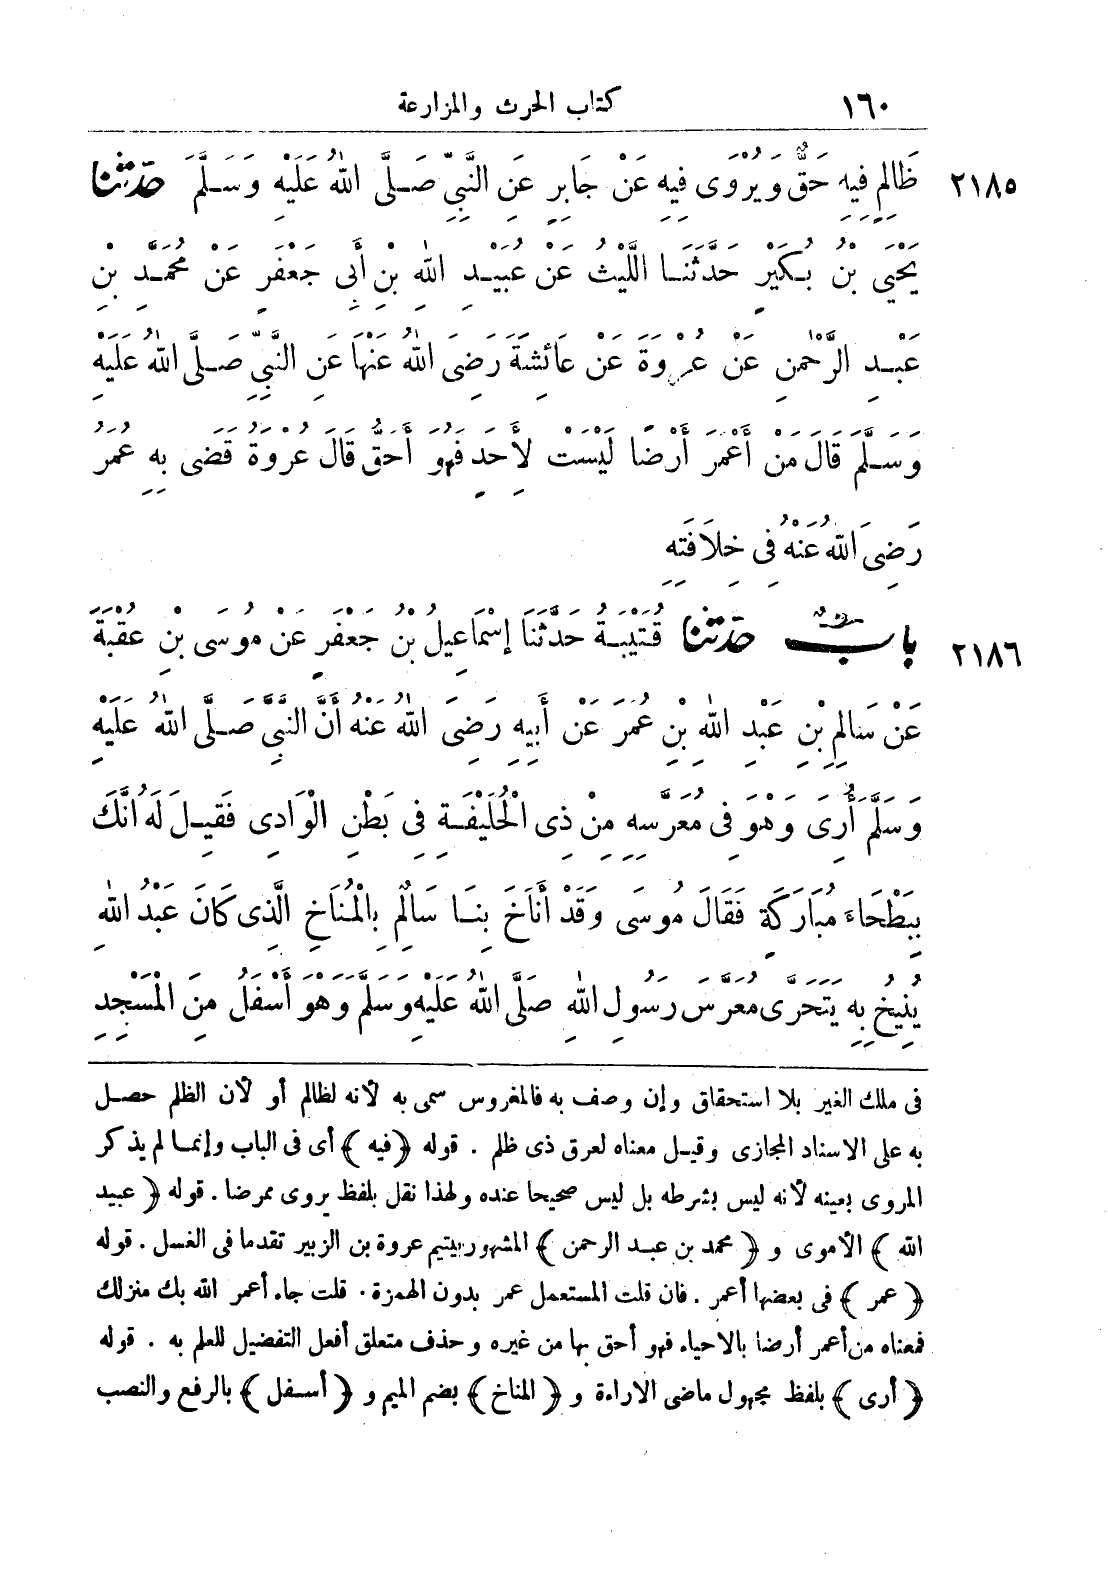 ١٦٠ كتاب الحرث والمزارعة
٢١٨٥ ظَالِمٍ فِيهِ حَقٌّ وَيُرْوَى فِيهِ عَنْ جَابِرٍ عَنِ النَّبِيِّ صَلَّى اللهُ عَلَيْهِ وَسَلَّمَ حَدَّثَنَا
يَحْيَى بْنُ بُكَيْرٍ حَدَّثَنَا اللَّيْثُ عَنْ عُبَيْدِ اللهِ بْنِ أَبِى جَعْفَرٍ عَنْ مُحَمَّدِ بْنِ
عَبْدِ الرَّحْمٰنِ عَنْ عُرْوَةَ عَنْ عَائِشَةَ رَضِىَ اللهُ عَنْهَا عَنِ النَّبِيِّ صَلَّى اللهُ عَلَيْهِ
وَسَلَّمَ قَالَ مَنْ أَعْمَرَ أَرْضًا لَيْسَتْ لِأَحَدٍ فَهُوَ أَحَقُّ قَالَ عُرْوَةُ قَضَى بِهِ عُمَرُ
رَضِىَ اللهُ عَنْهُ فِى خِلَافَتِهِ
٢١٨٦ بَابٌ حَدَّثَنَا قُتَيْبَةُ حَدَّثَنَا إِسْمَاعِيلُ بْنُ جَعْفَرٍ عَنْ مُوسَى بْنِ عُقْبَةَ
عَنْ سَالِمِ بْنِ عَبْدِ اللهِ بْنِ عُمَرَ عَنْ أَبِيهِ رَضِىَ اللهُ عَنْهُ أَنَّ النَّبِىَّ صَلَّى اللهُ عَلَيْهِ
وَسَلَّمَ أُرِىَ وَهْوَ فِى مُعَرَّسِهِ مِنْ ذِى الْحُلَيْفَةِ فِى بَطْنِ الْوَادِى فَقِيلَ لَهُ انَّكَ
بِبَطْحَاءَ مُبَارَكَةٍ فَقَالَ مُوسَى وَقَدْ أَنَاخَ بِنَا سَالِمٌ بِالْمُنَاخِ الَّذِى كَانَ عَبْدُ اللهِ
يُنِيخُ بِهِ يَتَحَرَّى مُعَرَّسَ رَسُولِ اللهِ صَلَّى اللهُ عَلَيْهِ وَسَلَّمَ وَهْوَ أَسْفَلُ مِنَ الْمَسْجِدِ
فى ملك الغير بلا استحقاق وإن وصف به فالمغروس سمى به لأنه لظالم أو لأن الظلم حصل
به على الاسناد المجازى وقيل معناه لعرق ذى ظلم . قوله ﴿فيه﴾ أى فى الباب وإنما لم يذكر
المروى بعينه لأنه ليس بشرطه بل ليس صحيحا عنده ولهذا نقل بلفظ يروى ممرضا . قوله ﴿عبيد
الله﴾ الأموى و ﴿محمد بن عبد الرحمن﴾ المشهور بيتيم عروة بن الزبير تقدما فى الغسل . قوله
﴿عمر﴾ فى بعضها أعمر . فان قلت المستعمل عمر بدون الهمزة . قلت جاء أعمر الله بك منزلك
فمعناه من أعمر أرضا بالاحياء فهو أحق بها من غيره وحذف متعلق أفعل التفضيل للعلم به . قوله
﴿أرى﴾ بلفظ مجهول ماضى الاراءة و ﴿المناخ﴾ بضم الميم و ﴿أسفل﴾ بالرفع والنصب